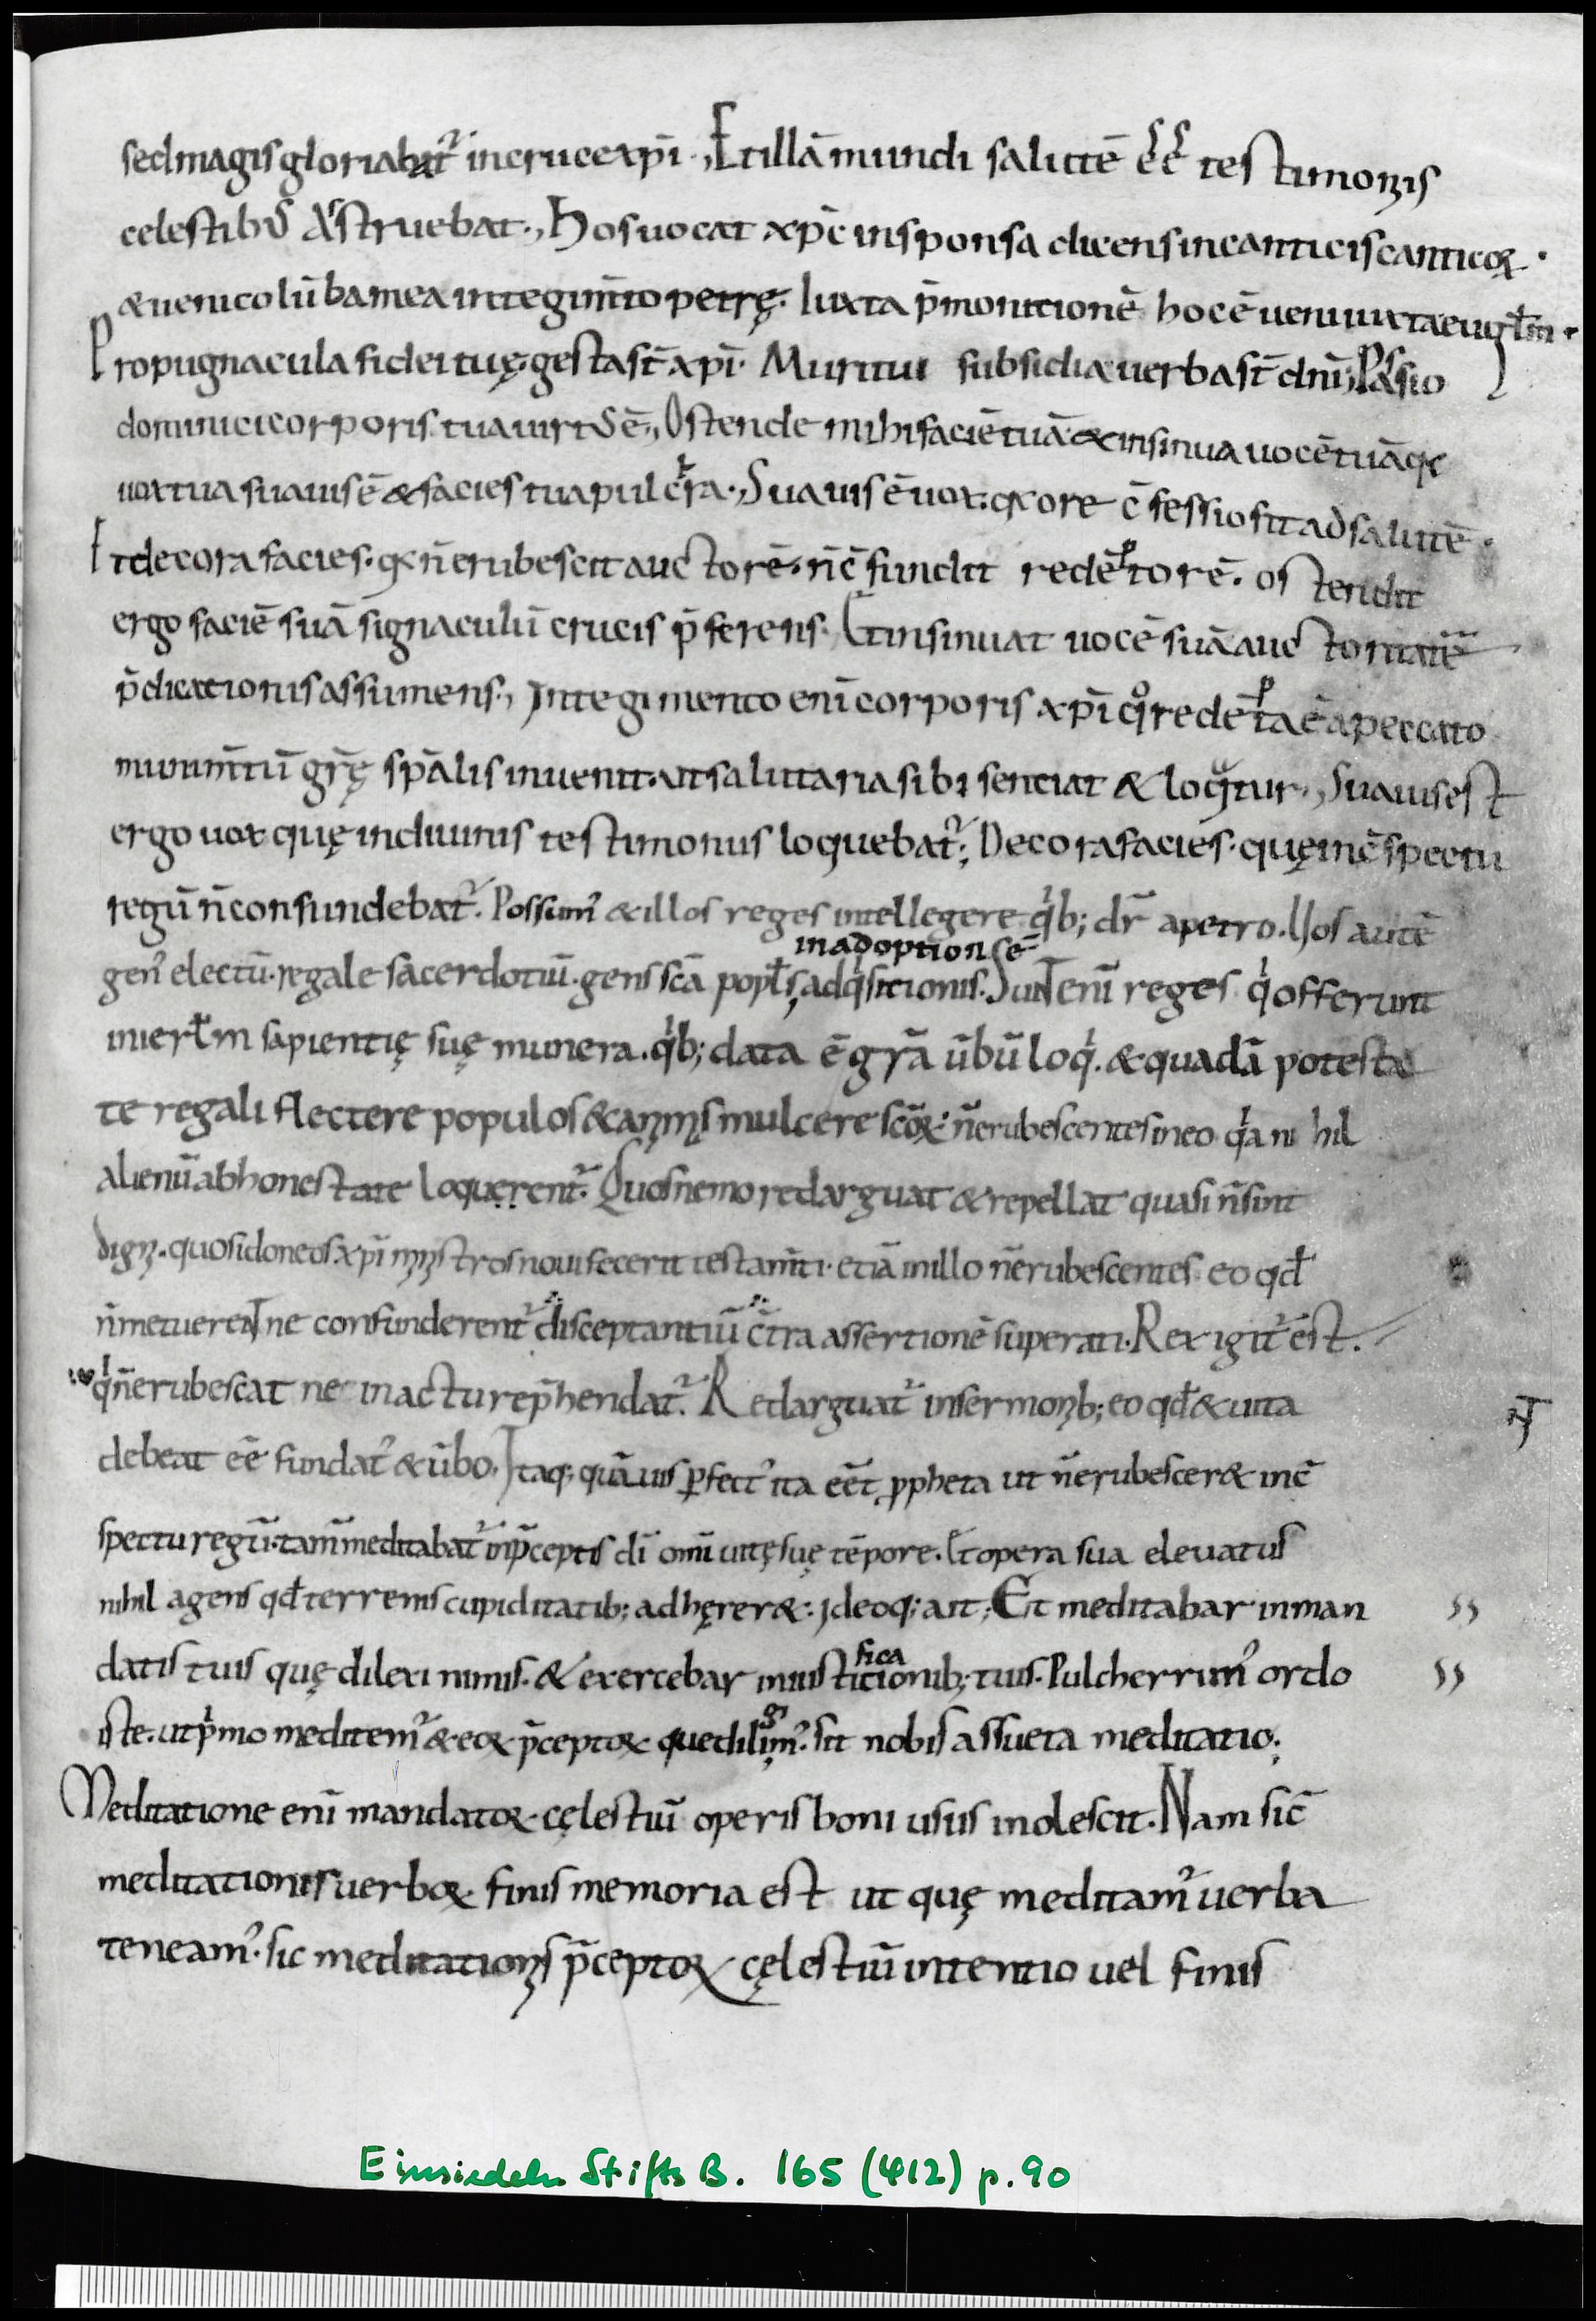 sed magis gloriabat᷑ in cruce xp̄i. Et illā mundi salutē ēē testimoniis
celestibus Astruebat., Hos uocat xp̄c in sponsa dicens in canticis canticoꝝ.
& ueni colūba mea in tegim̄to petrę. Iuxta p̄monitionē hoc ē ueni iuxta euḡlm.
Propugnacula fidei tuę. gesta st̄ xp̄i. Muri tui subsidia uerba st̄ dn̄i, Passio
dominici corporis tua uirtus ē., Ostende mihi faciē tuā & insinua uocē tuā qꝫ
uox tua suauis ē & facies tua pulchra., Suauis ē uox. q̄ ore c̄fessio fit ad salutē.
Et decora facies. q̄ n̄ erubescit auctorē. n̄ c̄fundit redēptorē. ostendit
ergo faciē suā signaculū crucis p̄ferens. Et insinuat uocē suā auctoritatē
p̄dicationis assumens., Integimento enī corporis xp̄i qͦ redēpta ē a peccato
munim̄tū grę̄ sp̄alis inuenit. ut salutaria sibi sentiat & loquatur., Suauis est
ergo uox quę in diuinis testimoniis loquebat᷑; Decora facies. quę in c̄spectu
regū n̄ confundebat᷑. Possum᷒ & illos reges intellegere qⁱb; dr̄ a petro. Uos autē
gen᷒ electū. regale sacerdotiū. gens sc̄a popl̄s adqⁱsitionis. Sunt enī reges qⁱ offerunt
in adoptionē
in ierl̄m sapientię suę munera. qⁱb; data ē gr̄a ūbū loqⁱ. & quadā potesta
te regali flectere populos & animis mulcere sc̄oꝝ. n̄ erubescentes in eo qⁱa nihil
alienū ab honestate loquerent᷑. Quos nemo redarguat & repellat quasi n̄ sint
digni. quos idoneos xp̄i ministros noui fecerit testam̄ti. etiā in illo n̄ erubescentes eo qd̄
n̄ metuerent ne confunderent᷑ disceptantiū c̄tra assertionē superati. Rex igit᷑ est.
qⁱ n̄ erubescat ne in actu rep̄hendat᷑. Redarguat᷑ in sermonib; eo qd̄ & uita
debeat eē fundat᷒ & ūbo. Itaq; quāuis ꝑfect᷒ ita eēt ꝓpheta ut n̄ erubescer& in c̄
spectu regū. tam̄ meditabat᷑ in p̄ceptis dī omī uitę suę tēpore. Et opera sua eleuatus
nihil agens qd̄ terrenis cupiditatib; adhęrer&. ideoq; ait; Et meditabar in man
datis tuis quę dilexi nimis. & exercebar in iustificationib; tuis. Pulcherrim᷒ ordo
iste. ut pⁱmo meditem᷒ & eoꝝ p̄ceptoꝝ que diligim᷒. sit nobis assueta meditatio;
Meditatione enī mandatoꝝ cęlestiū operis boni usus inolescit. Nam sic̄
meditationis uerboꝝ finis memoria est ut quę meditam᷒ uerba
teneam᷒. sic meditationis p̄ceptoꝝ cęlestiū intentio uel finis
Einsiedeln Stifts B. 165 (412) p. 90